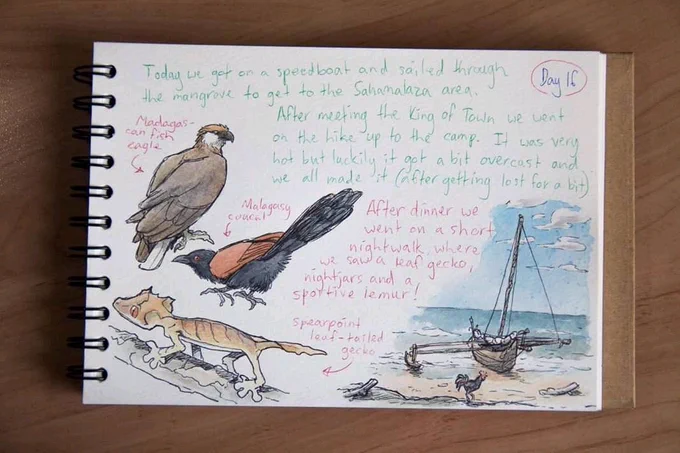 Today we got on a speedboat and sailed through
the mangrove to get to the Sahamalaza area.
Day 16
After meeting the King of Town we went
on the hike up to the camp. It was very
hot but luckily it got a bit overcast and
we all made it (after getting lost for a bit)
Madagas-
can fish
eagle
Malagasy
coucal
After dinner we
went on a short
nightwalk, where
we saw a leaf gecko,
nightjars and a
sportive lemur!
Spearpoint
leaf-tailed
gecko